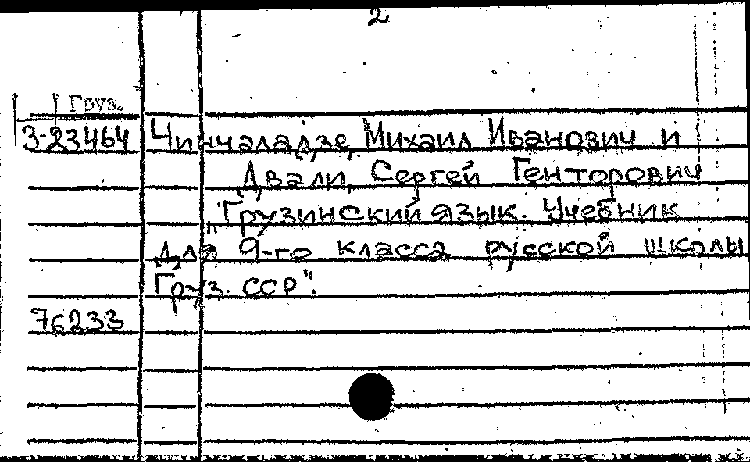 2
Груз.
3-23464 Чинчаладзе, Михаил Иванович и
Двали, Сергей Генторович
„Грузинский язык. Учебник
для 9-го класса русской школы
Груз. ССР".
76233